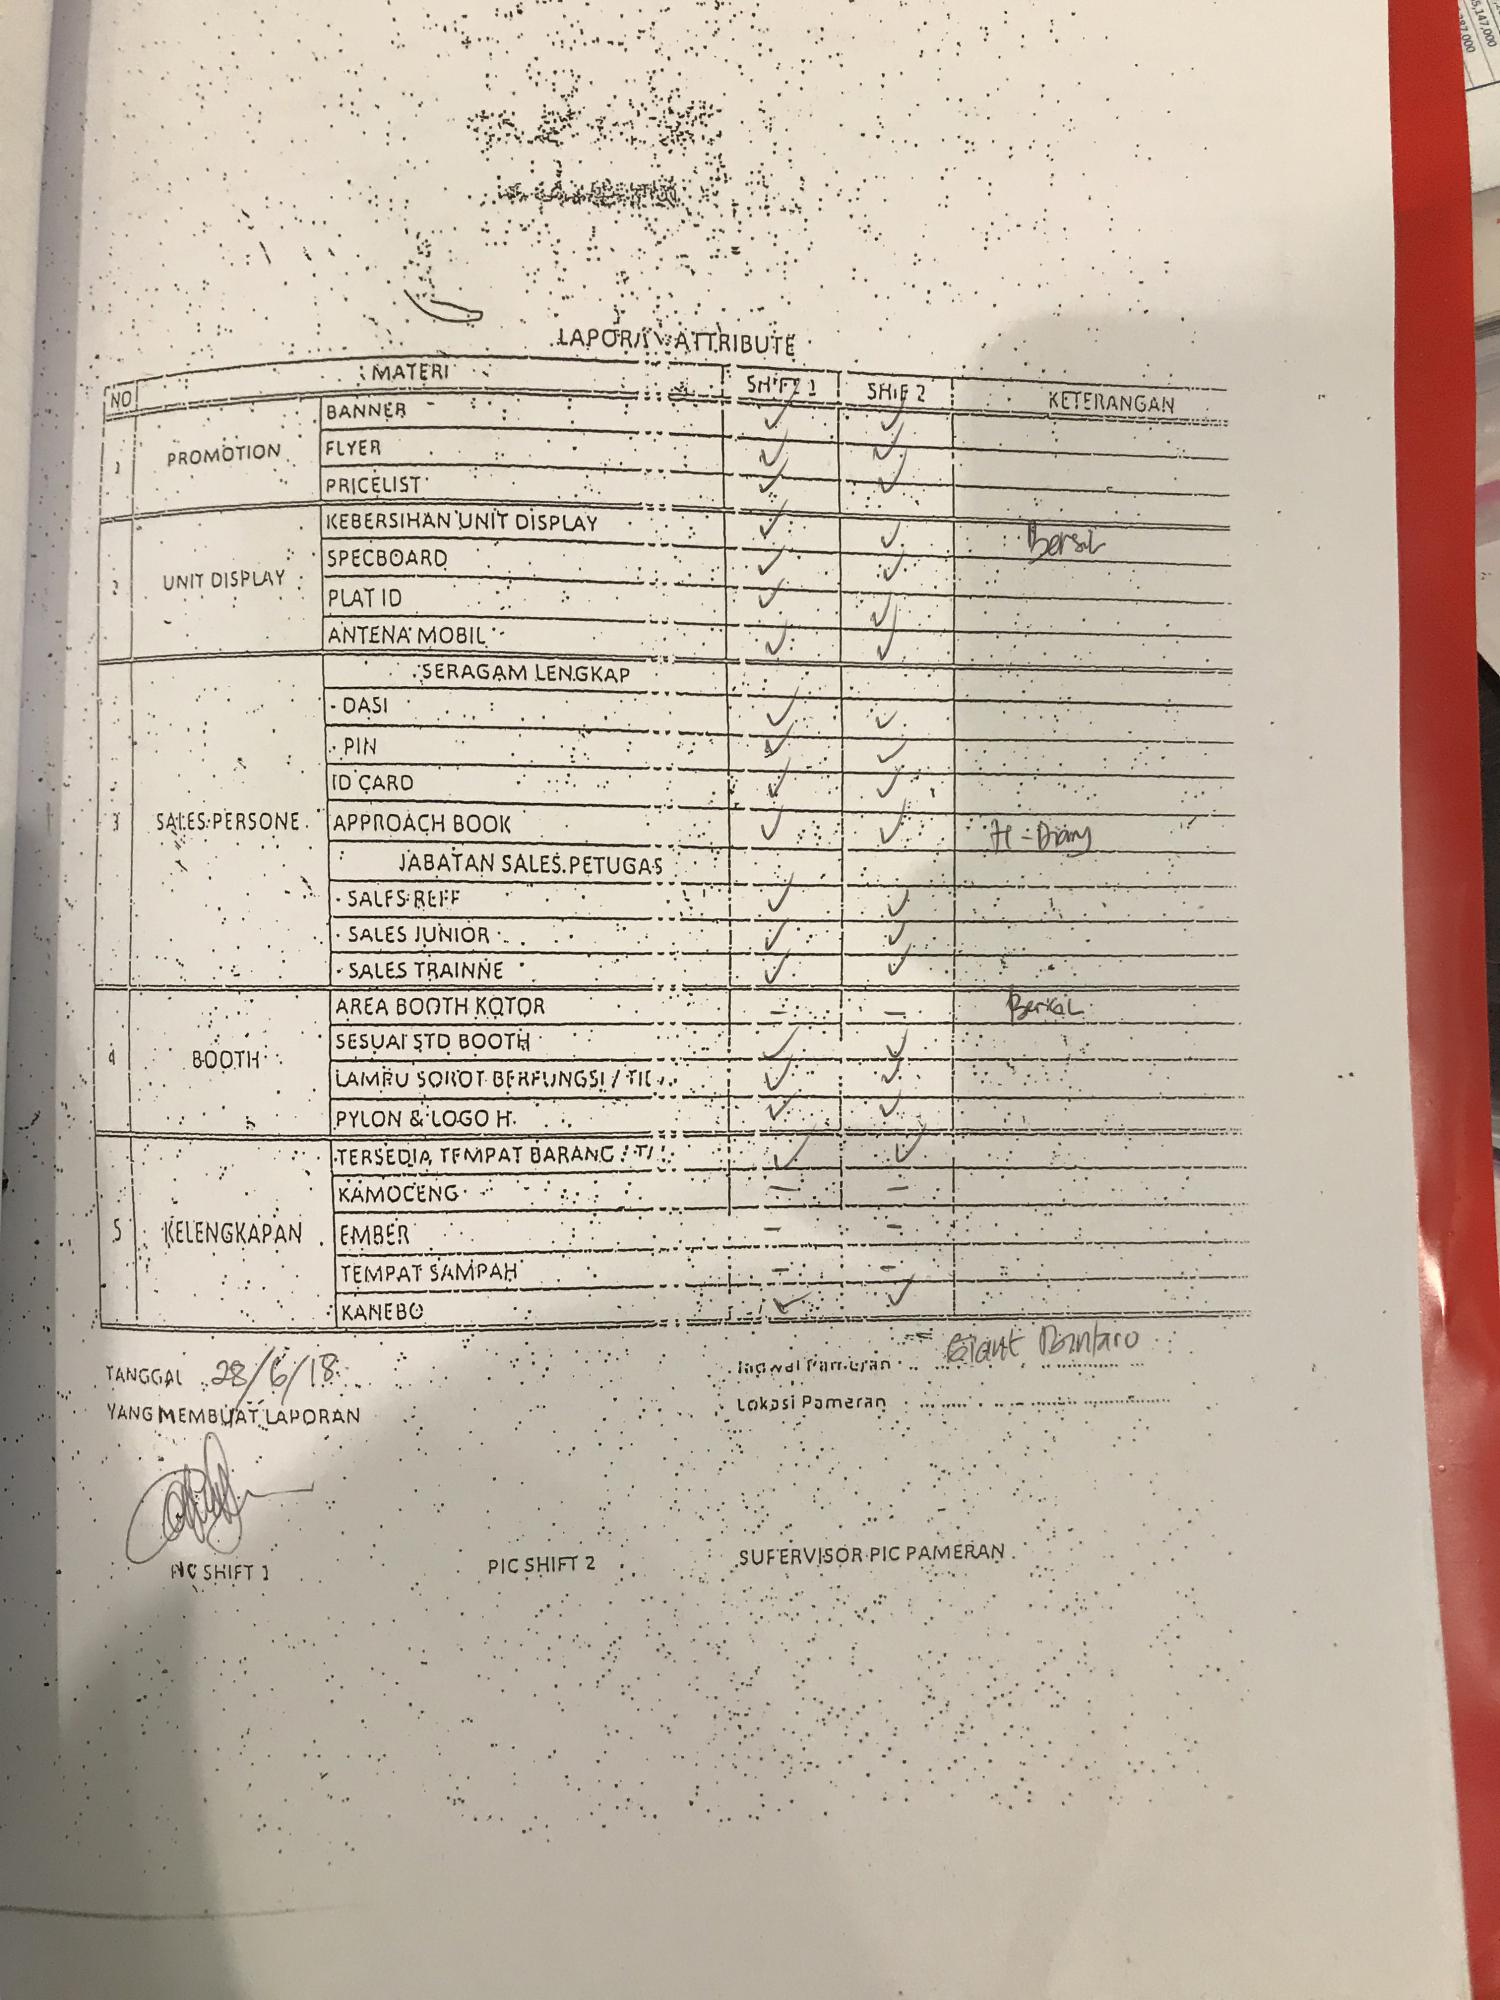 LAPORAN ATTRIBUTE
NO MATERI SHIFT 1 SHIF 2 KETERANGAN
1 PROMOTION BANNER ✓ ✓
FLYER ✓ ✓
PRICELIST ✓ ✓
2 UNIT DISPLAY KEBERSIHAN UNIT DISPLAY ✓ ✓ Bersih
SPECBOARD ✓ ✓
PLAT ID ✓ ✓
ANTENA MOBIL ✓ ✓
3 SALES PERSONE SERAGAM LENGKAP
- DASI ✓ ✓
- PIN ✓ ✓
ID CARD ✓ ✓
APPROACH BOOK ✓ ✓ H - Diary
JABATAN SALES PETUGAS
- SALES REFF ✓ ✓
- SALES JUNIOR ✓ ✓
- SALES TRAINNE ✓ ✓
4 BOOTH AREA BOOTH KOTOR - - Bersih
SESUAI STD BOOTH ✓ ✓
LAMPU SOROT BERFUNGSI / ✓ ✓
PYLON & LOGO H ✓ ✓
5 KELENGKAPAN TERSEDIA TEMPAT BARANG / ✓ ✓
KAMOCENG - -
EMBER - -
TEMPAT SAMPAH - -
KANEBO ✓ ✓
TANGGAL 28/6/18 Jadwal Pameran Giant Bintaro
YANG MEMBUAT LAPORAN Lokasi Pameran
PIC SHIFT 1 PIC SHIFT 2 SUPERVISOR PIC PAMERAN